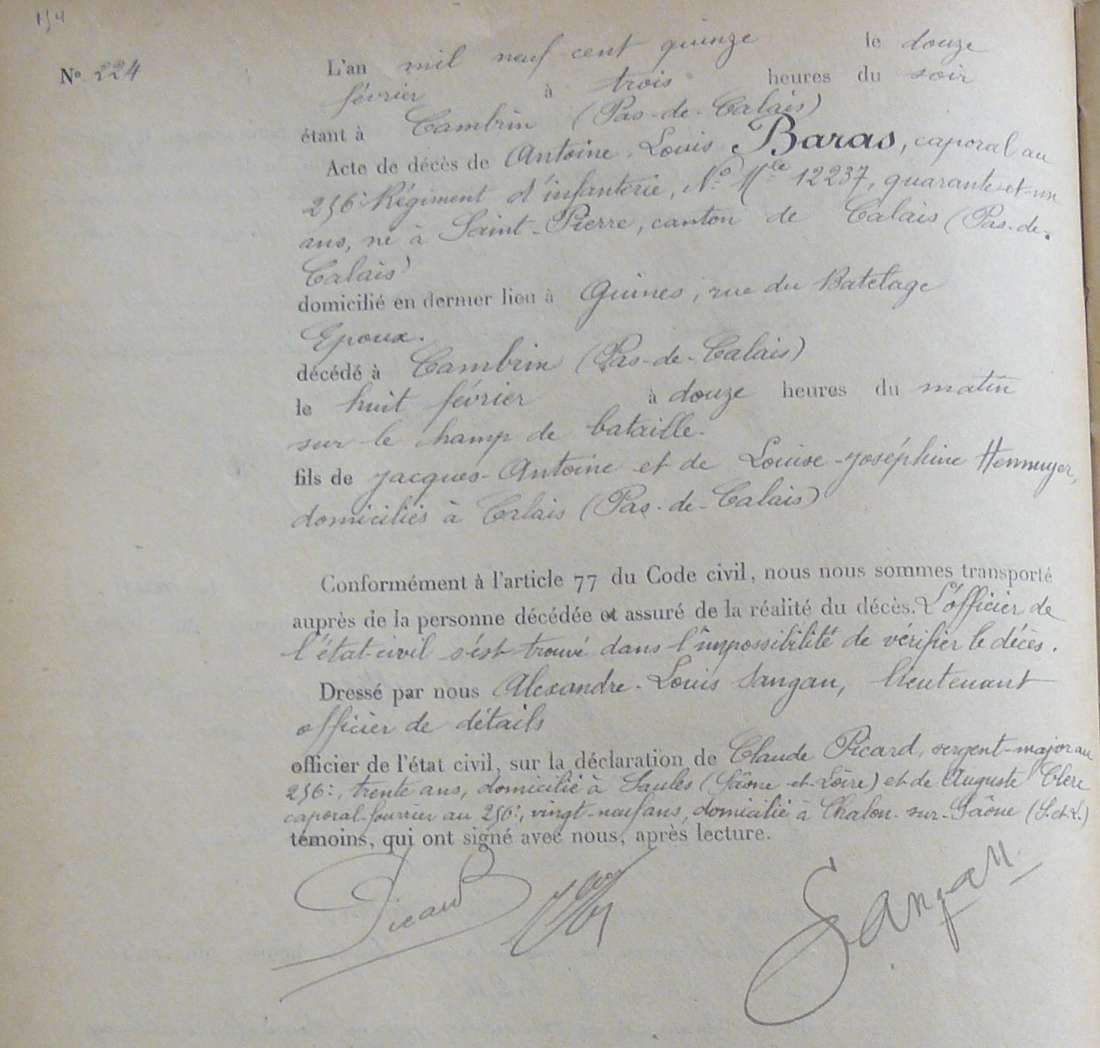 154
N° 224
L'an mil neuf cent quinze le douze
février à trois heures du soir
étant à Cambrin (Pas-de-Calais)
Acte de décès de Antoine-Louis Baras, caporal au
256e Régiment d'infanterie, N° Mle 12237, quarante-et-un
ans, né à Saint-Pierre, canton de Calais (Pas-de-
Calais)
domicilié en dernier lieu à Guines, rue du Batelage
Epoux.
décédé à Cambrin (Pas-de-Calais)
le huit février à douze heures du matin
sur le champ de bataille.
fils de Jacques-Antoine et de Louise-Joséphine Hennuyer,
domiciliés à Calais (Pas-de-Calais)
Conformément à l'article 77 du Code civil, nous nous sommes transporté
auprès de la personne décédée et assuré de la réalité du décès. L'officier de
l'état-civil s'est trouvé dans l'impossibilité de vérifier le décès.
Dressé par nous Alexandre-Louis Sangan, lieutenant
officier de détails
officier de l'état civil, sur la déclaration de Claude Picard, sergent-major au
256e, trente ans, domicilié à Saules (Saône-et-Loire) et de Auguste Clere
caporal-fourrier au 256e, vingt-neuf ans, domicilié à Chalon-sur-Saône (S.et.L.)
témoins, qui ont signé avec nous, après lecture.
Picard
Sangan